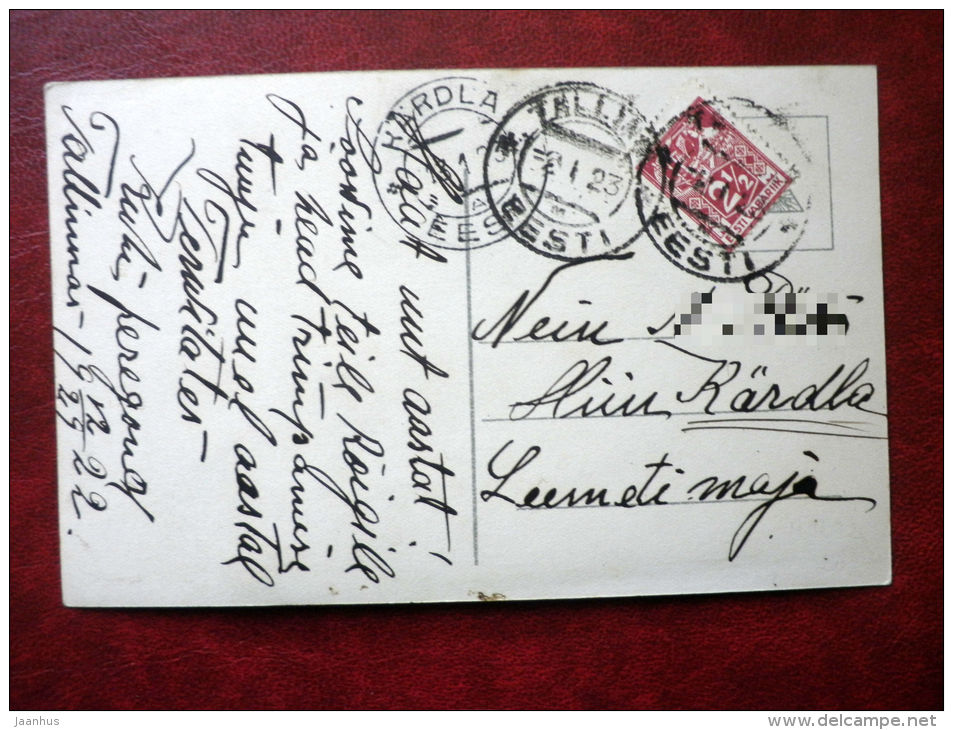 Palut uut aastat
Soovime teile kõigile
ja head
tungu uuel aastal
Tervitates
Ruhi peregond
Tallinnas 19 29/12 22.
KÄRDLA
EESTI
TALLINN
2 I 23
EESTI
2½
EESTI VABARIIK
EESTI
Nein
Hiiu Kärdla
Leemeti maja
Jaanhus
www.delcampe.net